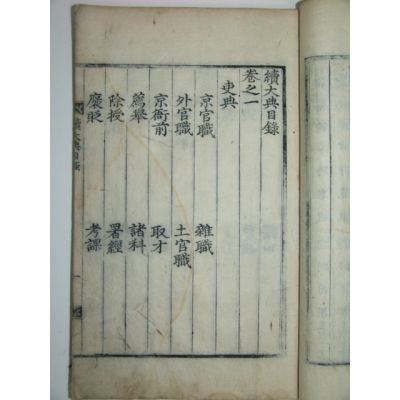 續大典目錄
卷之一
吏典
京官職 雜職
外官職 土官職
京衙前 取才
薦擧 諸科
除授 署經
褒貶 考課
續大典目錄
一